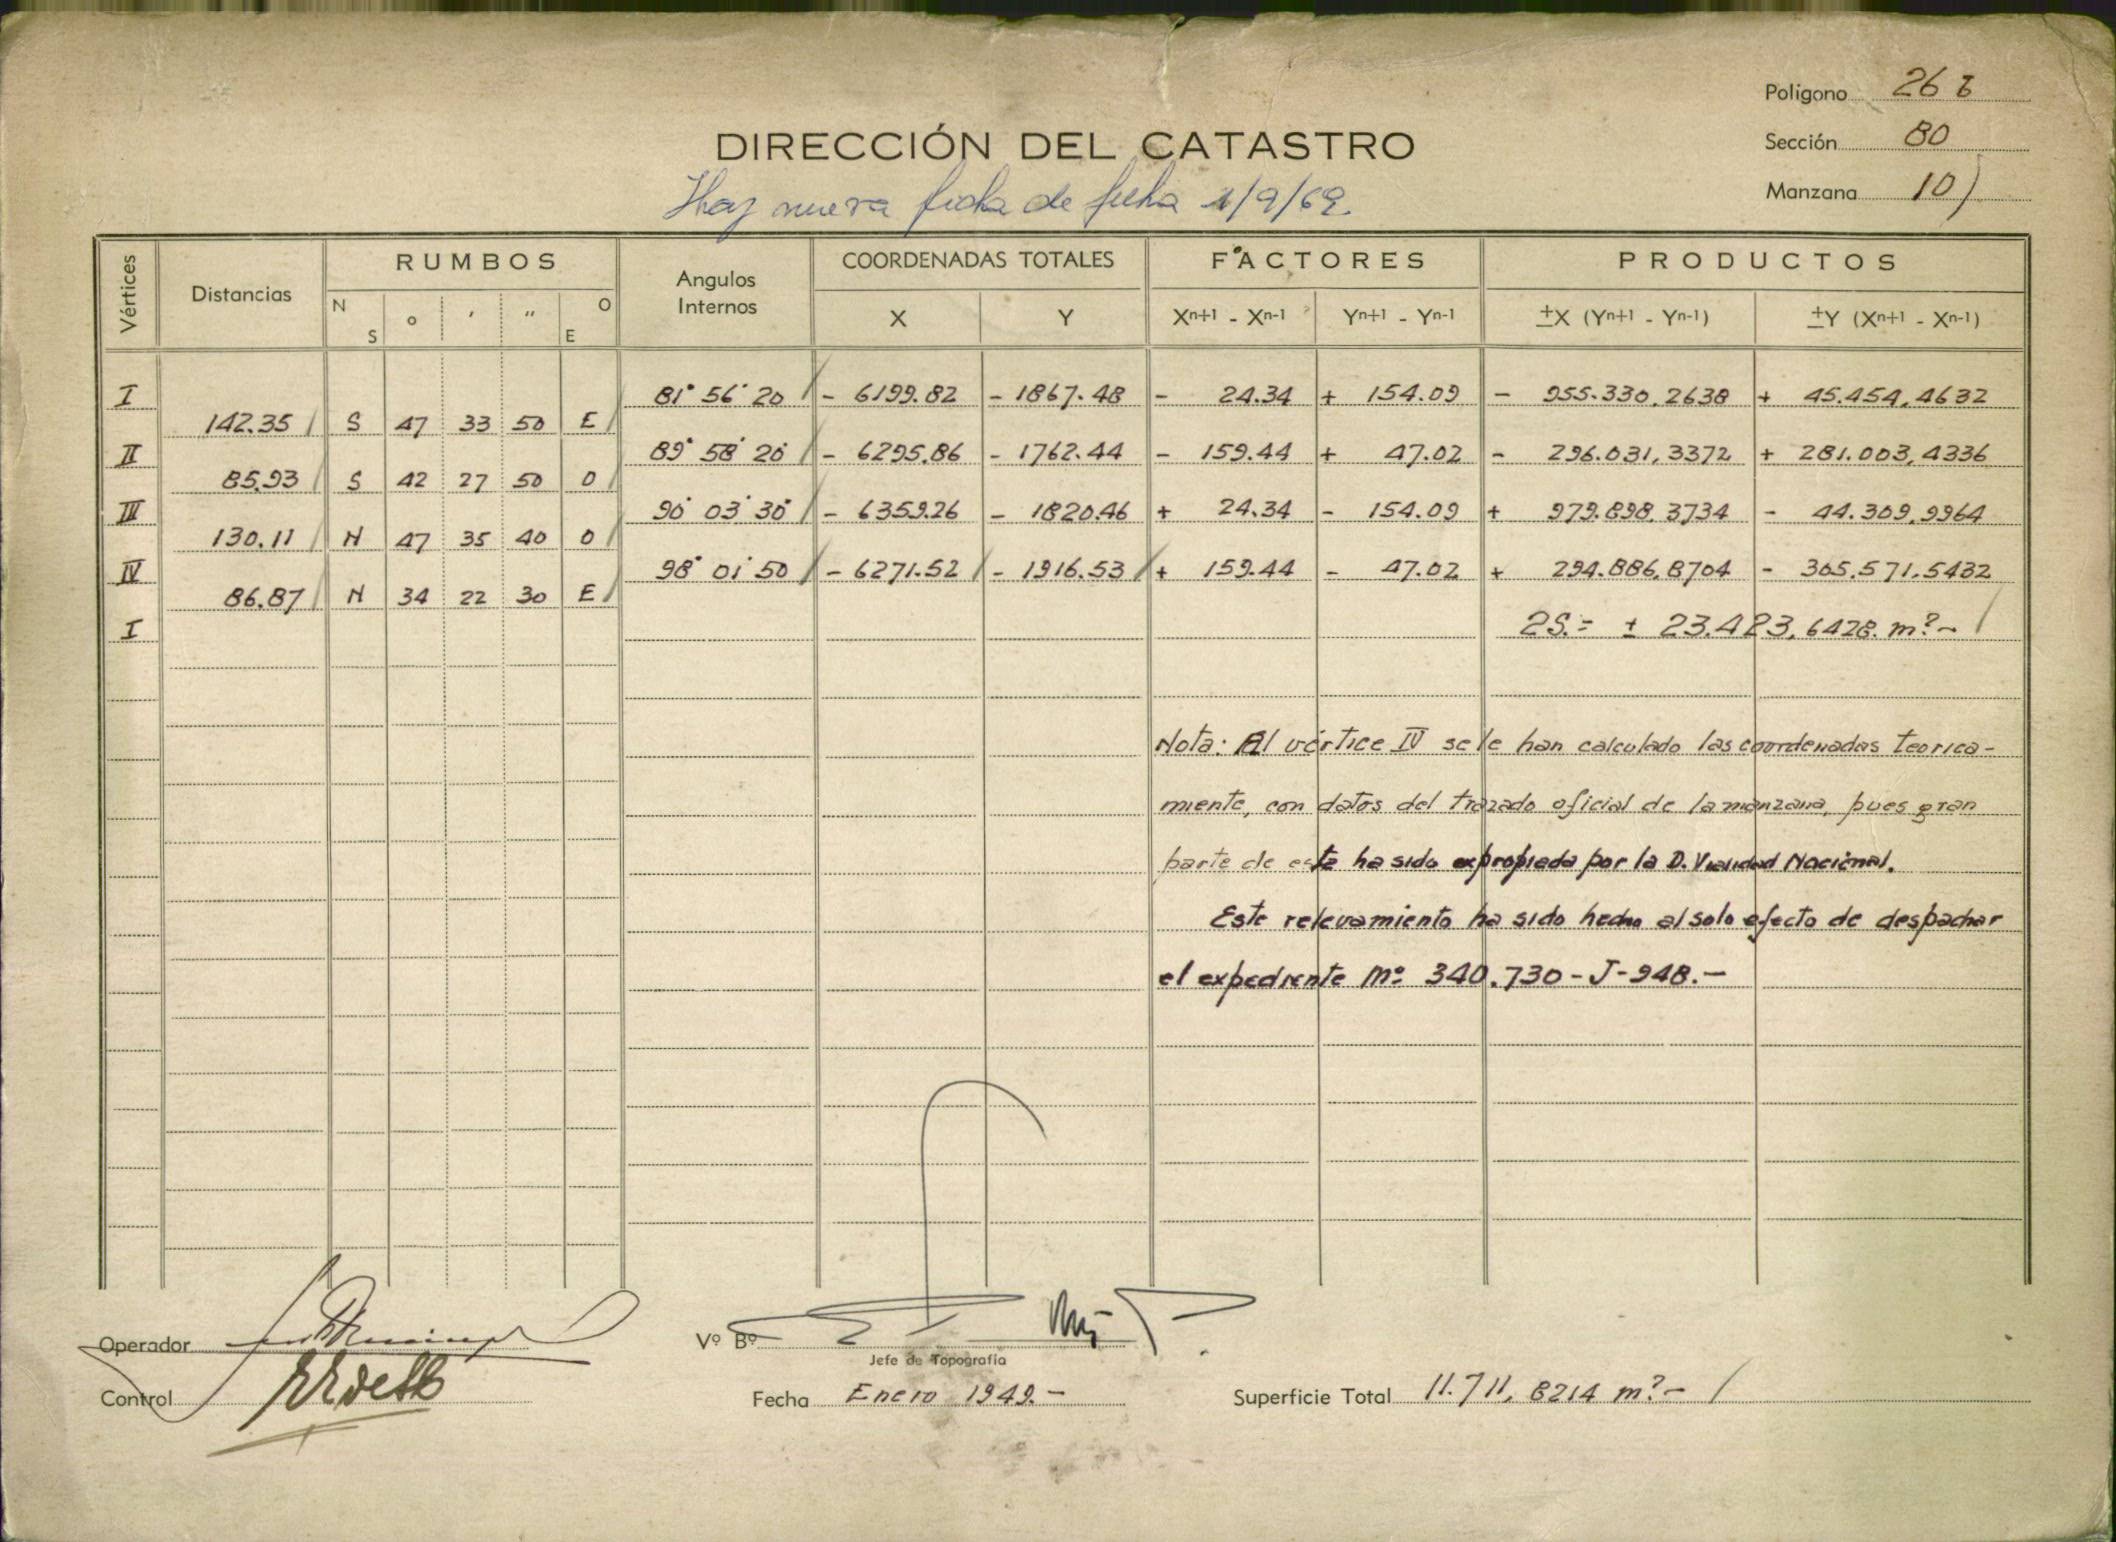 Polígono 26 b
Sección 80
Manzana 10
DIRECCIÓN DEL CATASTRO
Hay nueva ficha de fecha 1/9/69.
Vértices Distancias RUMBOS Angulos Internos COORDENADAS TOTALES FACTORES PRODUCTOS
N S ° ' " O E X Y Xn+1 - Xn-1 Yn+1 - Yn-1 ±X (Yn+1 - Yn-1) ±Y (Xn+1 - Xn-1)
I 81° 56' 20 - 6199.82 - 1867.48 - 24.34 + 154.09 - 955.330,2638 + 45.454,4632
142.35 S 47 33 50 E
II 89° 58' 20" - 6295.86 - 1762.44 - 159.44 + 47.02 - 296.031,3372 + 281.003,4336
85.93 S 42 27 50 O
III 90° 03' 30" - 6359.26 - 1820.46 + 24.34 - 154.09 + 979.898,3734 - 44.309,9964
130.11 N 47 35 40 O
IV 98° 01' 50 - 6271.52 - 1916.53 + 159.44 - 47.02 + 294.886,8704 - 305.571,5432
86.87 N 34 22 30 E
I 2S.= ± 23.423,6428. m².-
Nota: Al vértice IV se le han calculado las coordenadas teorica-
miente, con datos del trazado oficial de la manzana, pues gran
parte de esta ha sido expropiada por la D. Vialidad Nacional.
Este relevamiento ha sido hecho al solo efecto de despachar
el expediente Nº 340.730-J-948.-
Operador
Vº Bº
Jefe de Topografía
Control
Fecha Enero 1949.-
Superficie Total 11.711,8214 m².-